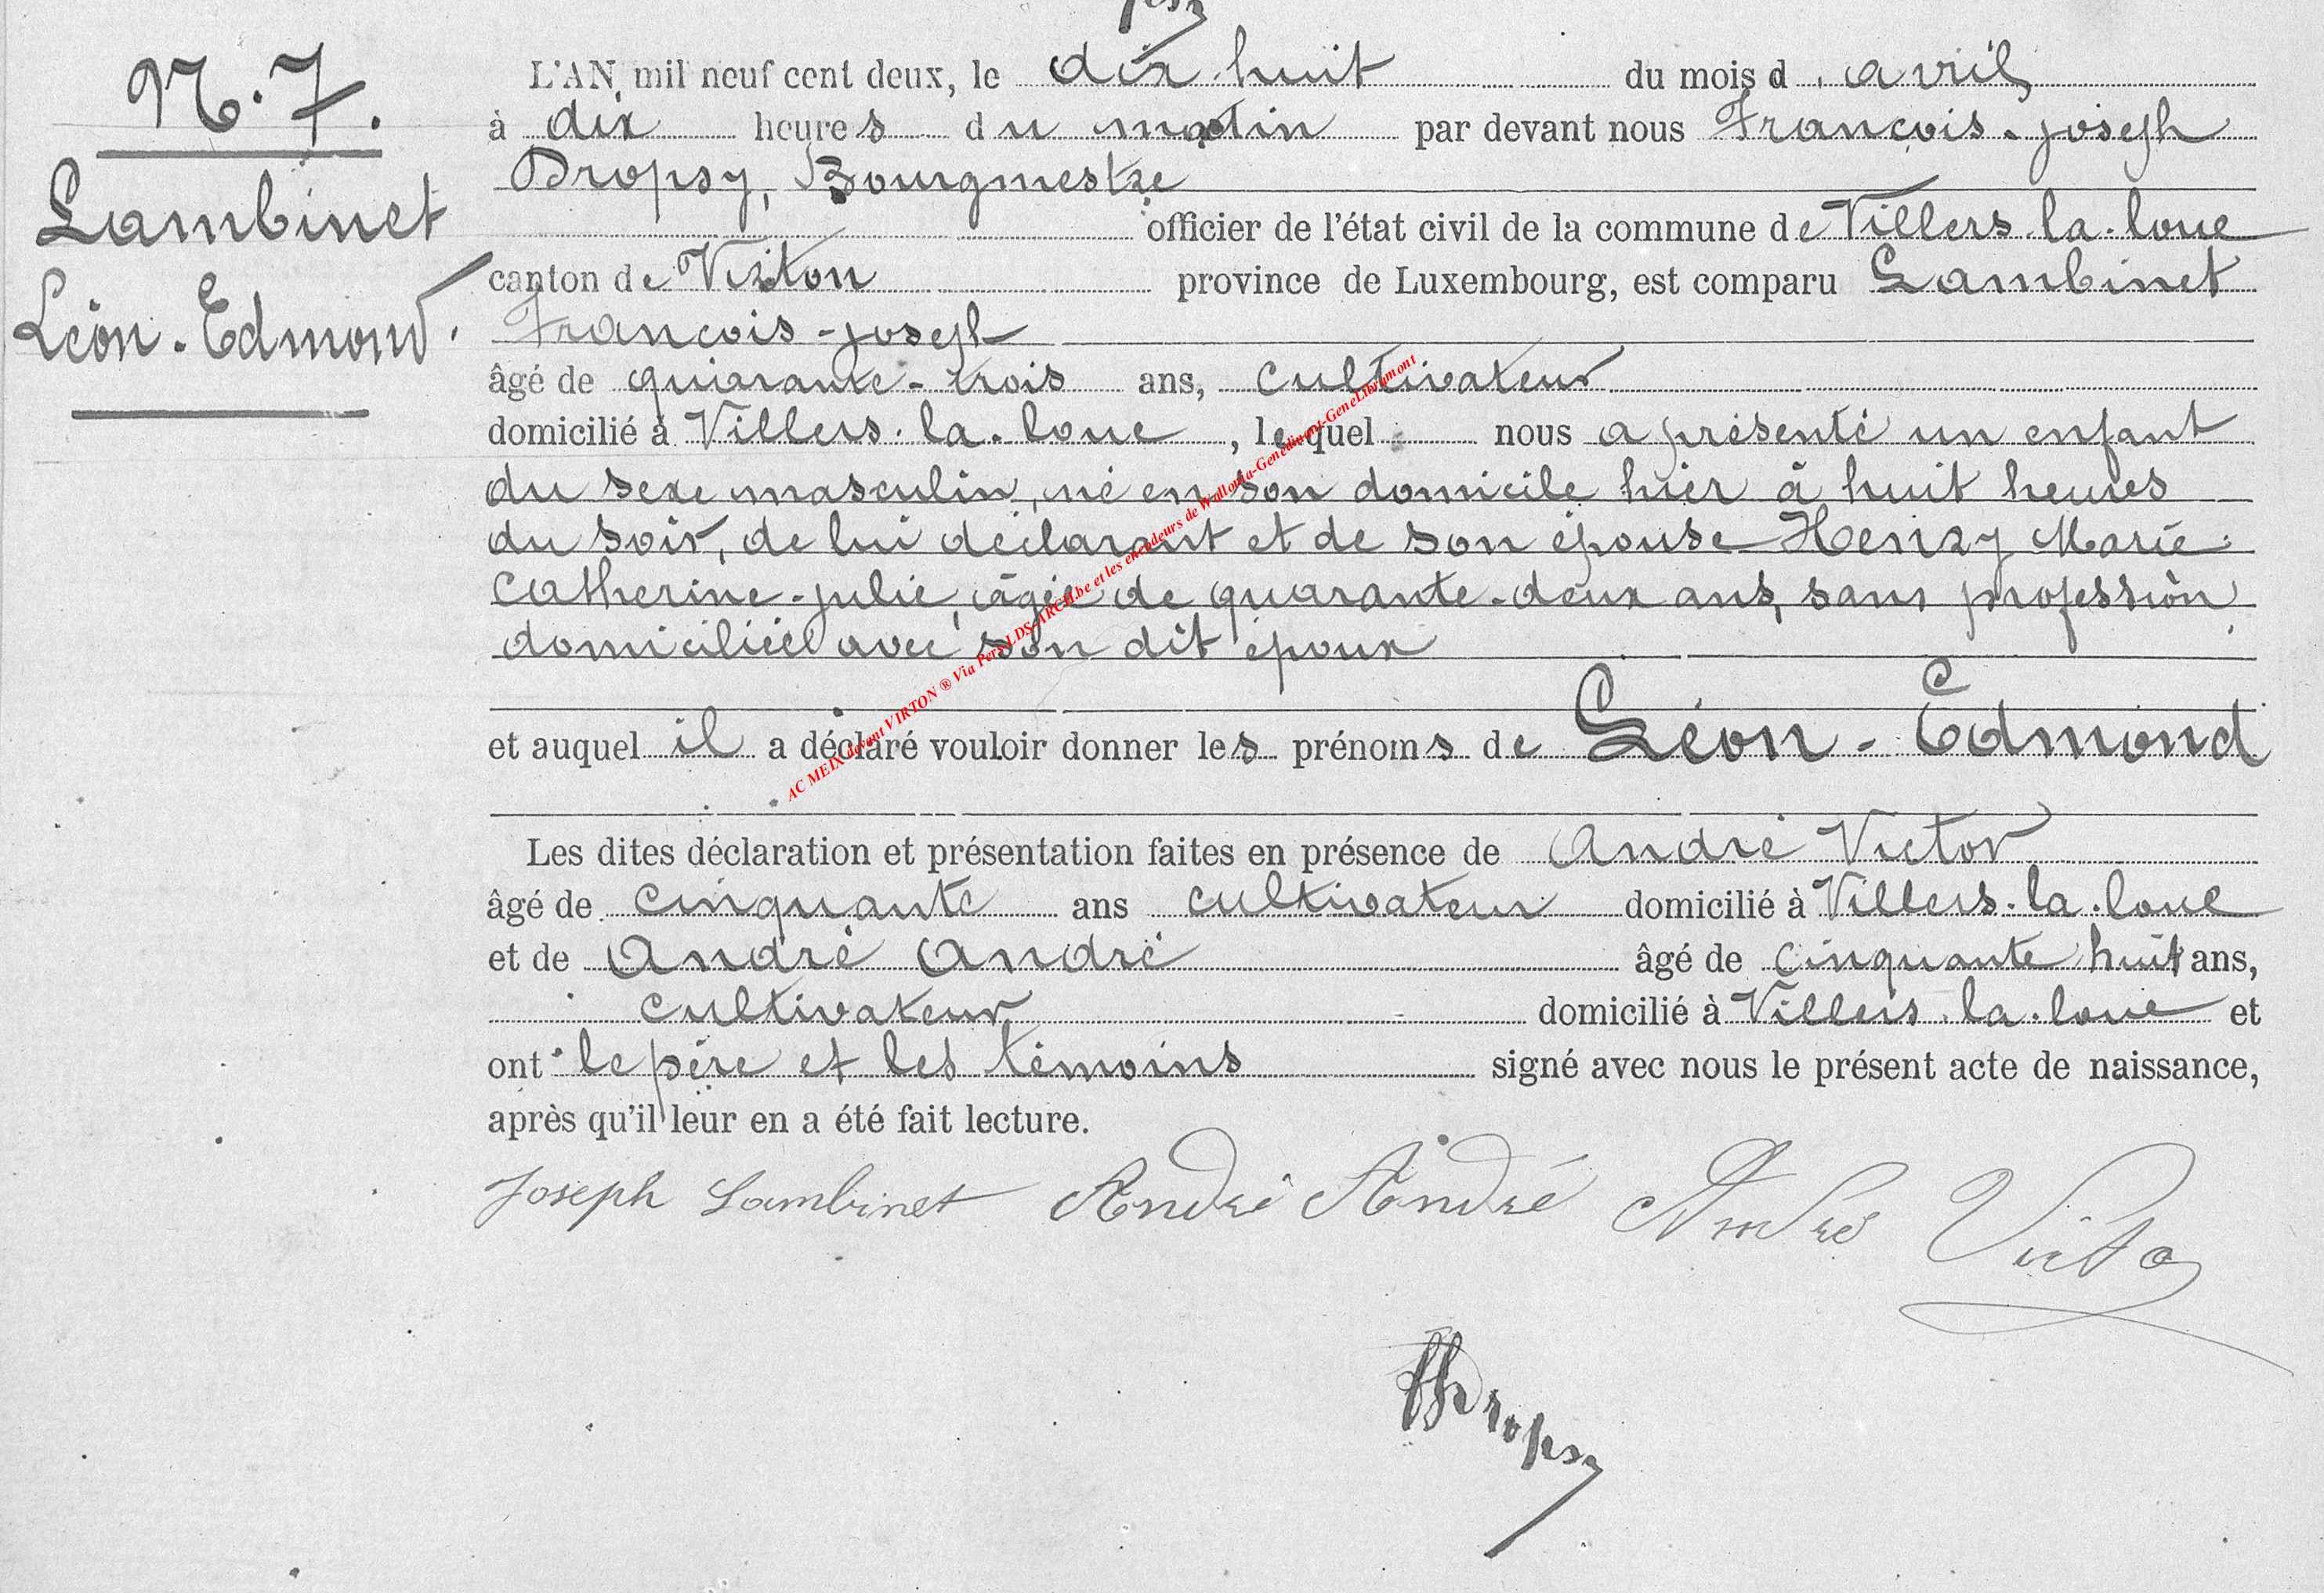 N. 7.
Lambinet
Léon-Edmond.
L'AN mil neuf cent deux, le dix huit du mois d'avril
à dix heures du matin par devant nous François-joseph
Dropsy, Bourgmestre
officier de l'état civil de la commune de Villers-la-loue
canton de Virton province de Luxembourg, est comparu Lambinet
François-joseph
âgé de quarante-trois ans, cultivateur
domicilié à Villers-la-loue, lequel nous a présenté un enfant
du sexe masculin, né en son domicile hier à huit heures
du soir, de lui déclarant et de son épouse Henry Marie-
Catherine-julie, âgée de quarante-deux ans, sans profession,
domiciliée avec son dit époux
et auquel il a déclaré vouloir donner les prénoms de Léon-Edmond
Les dites déclaration et présentation faites en présence de André Victor
âgé de cinquante ans cultivateur domicilié à Villers-la-loue
et de André André âgé de cinquante huit ans,
cultivateur domicilié à Villers-la-loue et
ont le père et les témoins signé avec nous le présent acte de naissance,
après qu'il leur en a été fait lecture.
Joseph Lambinet André André André Victor
Dropsy
AC MEIX devant VIRTON ® Via Pers-LDS-ARCH.be et les encodeurs de Wallonia-Genedinant-GeneLibramont